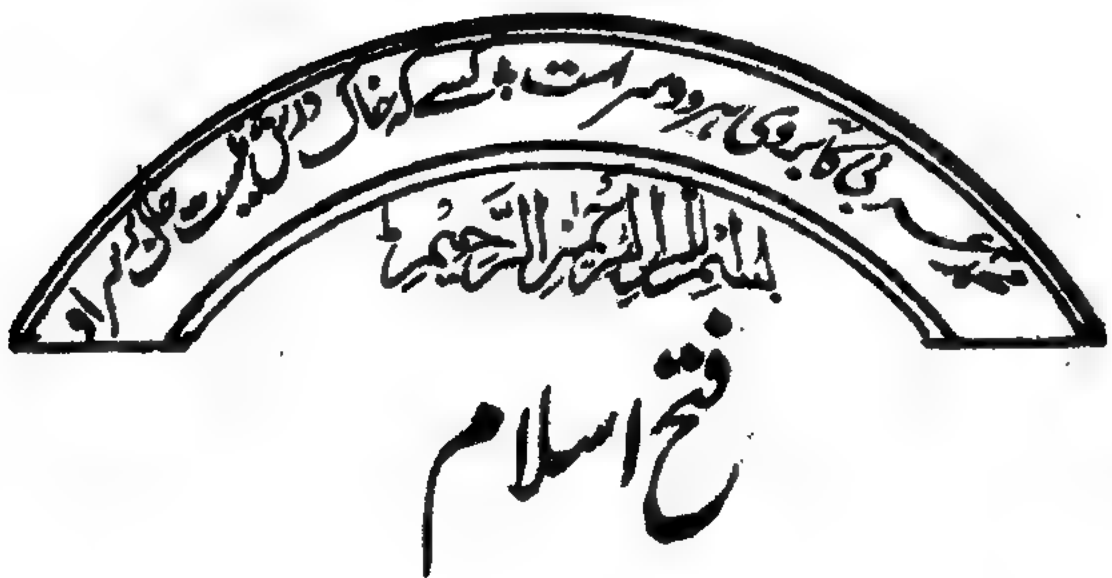 محمد عربی کآبروی ہر دو سراست ؛ کسے کہ خاک درش نیست خاک بر سر او
بِسْمِ اللّٰهِ الرَّحْمٰنِ الرَّحِيْمِ
فتح اسلام